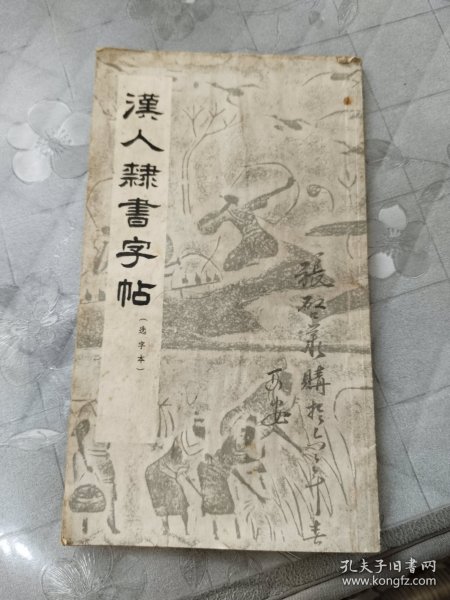 漢人隸書字帖
(选字本)
張
購於
春
西安
孔夫子旧书网
www.kongfz.com